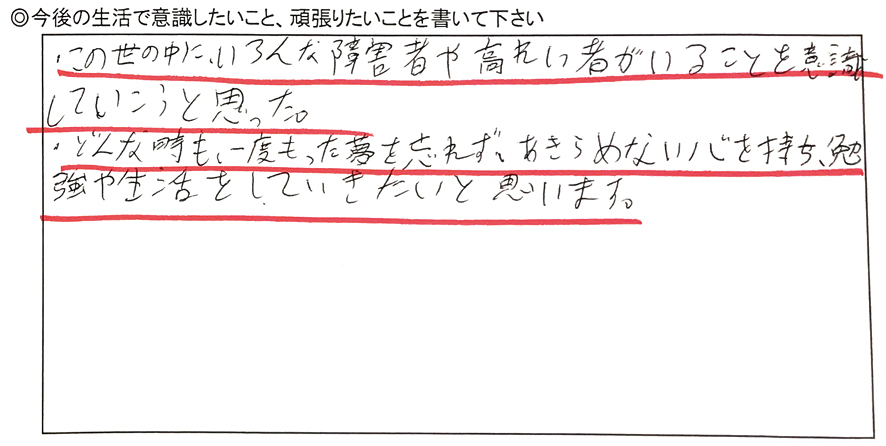 ◎今後の生活で意識したいこと、頑張りたいことを書いて下さい
・この世の中に、いろんな障害者や高れい者がいることを意識
していこうと思った。
・どんな時も、一度もった夢を忘れず、あきらめない心を持ち、勉
強や生活をしていきたいと思います。